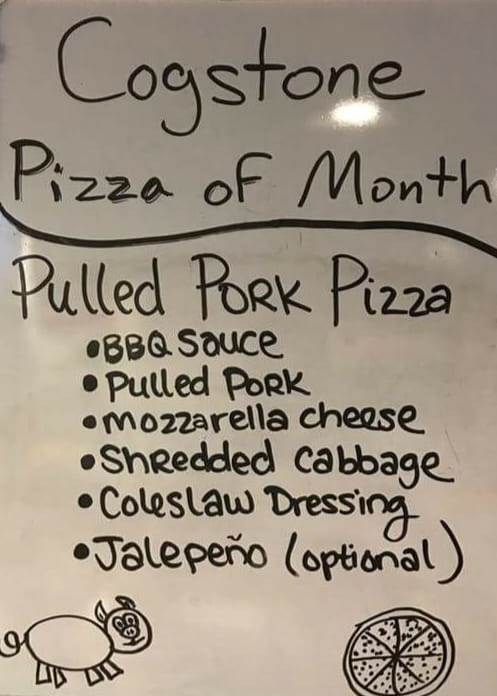 Cogstone
Pizza of Month
Pulled Pork Pizza
•BBQ Sauce
•Pulled Pork
•mozzarella cheese
•Shredded Cabbage
•Coleslaw Dressing
•Jalepeño (optional)